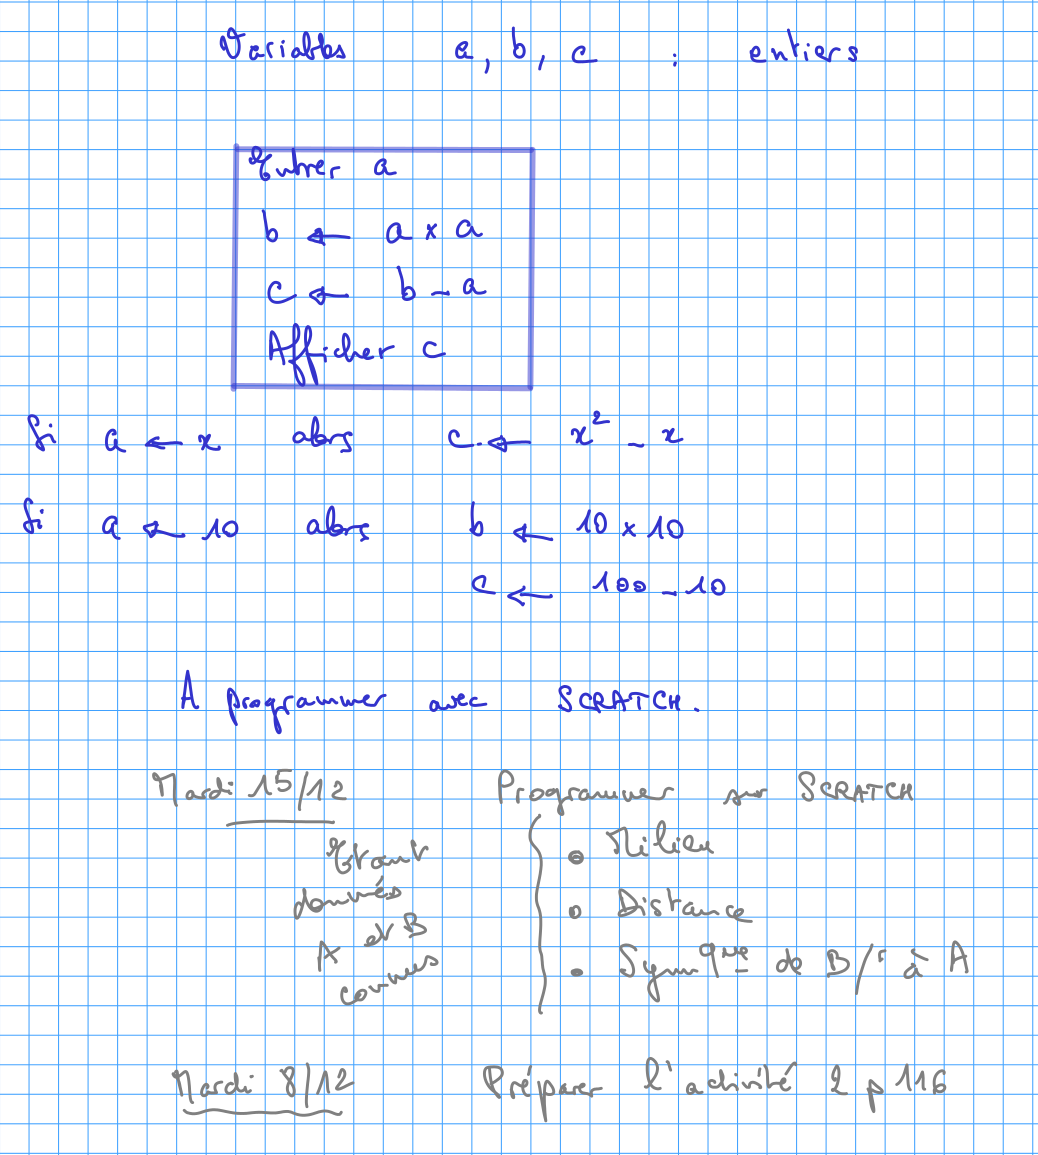 Variables a, b, c : entiers
Entrer a
b ← a × a
c ← b - a
Afficher c
Si a ← x alors c ← x² - x
Si a ← 10 alors b ← 10 × 10
c ← 100 - 10
A programmer avec SCRATCH.
Mardi 15/12 Programmer sur SCRATCH
Etant donnés A et B connus
• Milieu
• Distance
• Symqᵘᵉ de B/ʳ à A
Mardi 8/12 Préparer l'activité 2 p 116